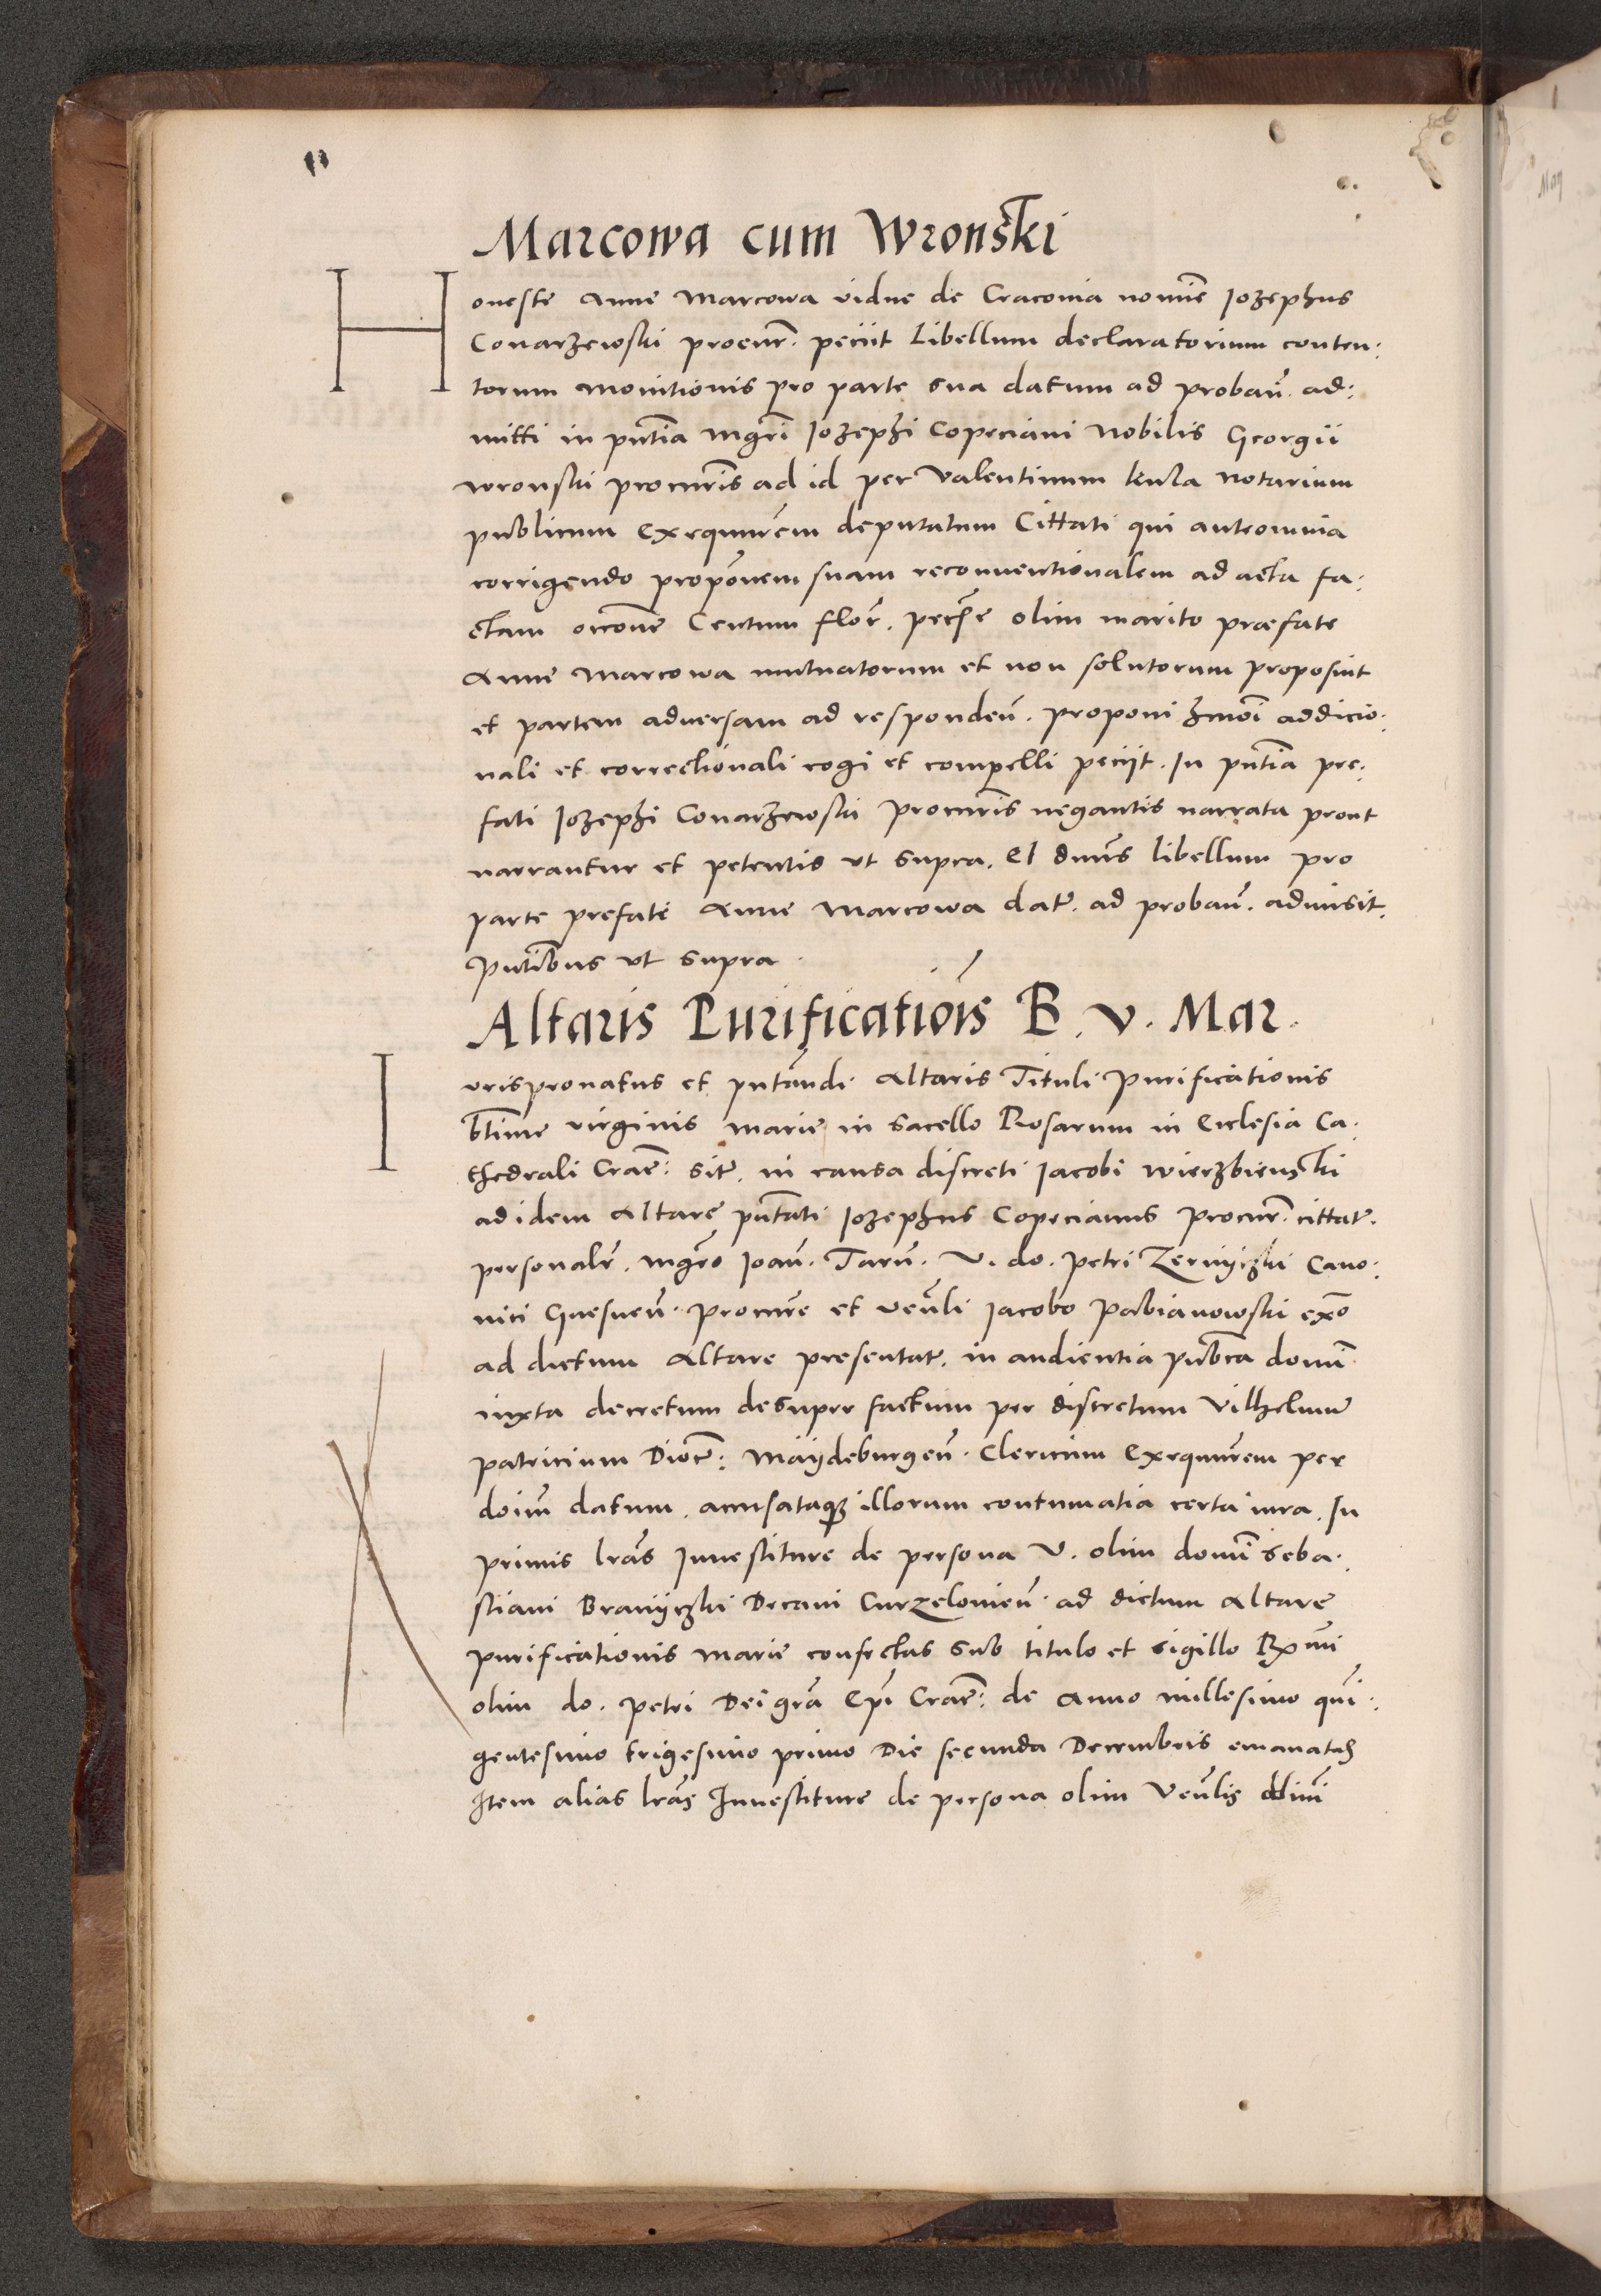 Marcowa cum Wronski
Honeste Anne Marcowa vidue de Cracovia nomīe Jozephus
Conarzewski procur̄. peciit Libellum declaratorium conten:
torum monitionis pro parte sua datum ad proban̄. ad:
mitti in pn̄tia mgrī Jozephi Copeciani Nobilis Georgii
Wronski procurīs ad id per Valentinum notarium
publicum exequurēm deputatum Cittati qui anteomnia
corrigendo propōnem suam reconventionalem ad acta fa:
ctam occōne Centum flor̄. olim marito præfate
Anne Marcowa mutuatorum et non solutorum proposuit
et partem adversam ad responden̄. proponi addicio:
nali et correctionali cogi et compelli peciit. In pn̄tia pre:
fati Jozephi Conarzewski procurīs negantis narrata prout
narrantur et petentis ut supra. Et dn̄us libellum pro
parte prefate Anne Marcowa dat̄. ad proban̄. admisit.
pn̄tibus ut supra.
Altaris Purificatiōis B. V. Mar.
Iurispronatus et pn̄tandi Altaris Tituli Purificationis
btīme virginis marie in sacello Rosarum in Ecclesia Ca:
thedrali Crac̄: sit̄. in causa discreti Jacobi Wierzbienski
ad idem Altare pn̄tati Jozephus Copecianus procur̄. cittat̄.
personalr̄. mgrō Joan̄. Tarn̄. V. do. Petri Zernyczki Cano:
nici Gnesnen̄. procurē et ven̄li Jacobo Pabianowski exō
ad dictum Altare presentat̄. in audientia pub̄ca domī
iuxta decretum desuper factum per discretum Vilhelmū
patricium Dioc̄: Maydeburgen̄. Clericum exequurēm per
doīm datum. accusataqȝ illorum contumatia certa iura. In
primis lrās Investiture de persona V. olim domī Seba:
stiani Branyczki Decani Curzelovien̄. ad dictum Altare
purificationis marie confectas sub titulo et sigillo Rmī
olim do. Petri Dei grā Epī Crac̄: de Anno millesimo quī:
gentesimo trigesimo primo Die secunda Decembris emanatas
Item alias lrās Investiture de persona olim Ven̄lis